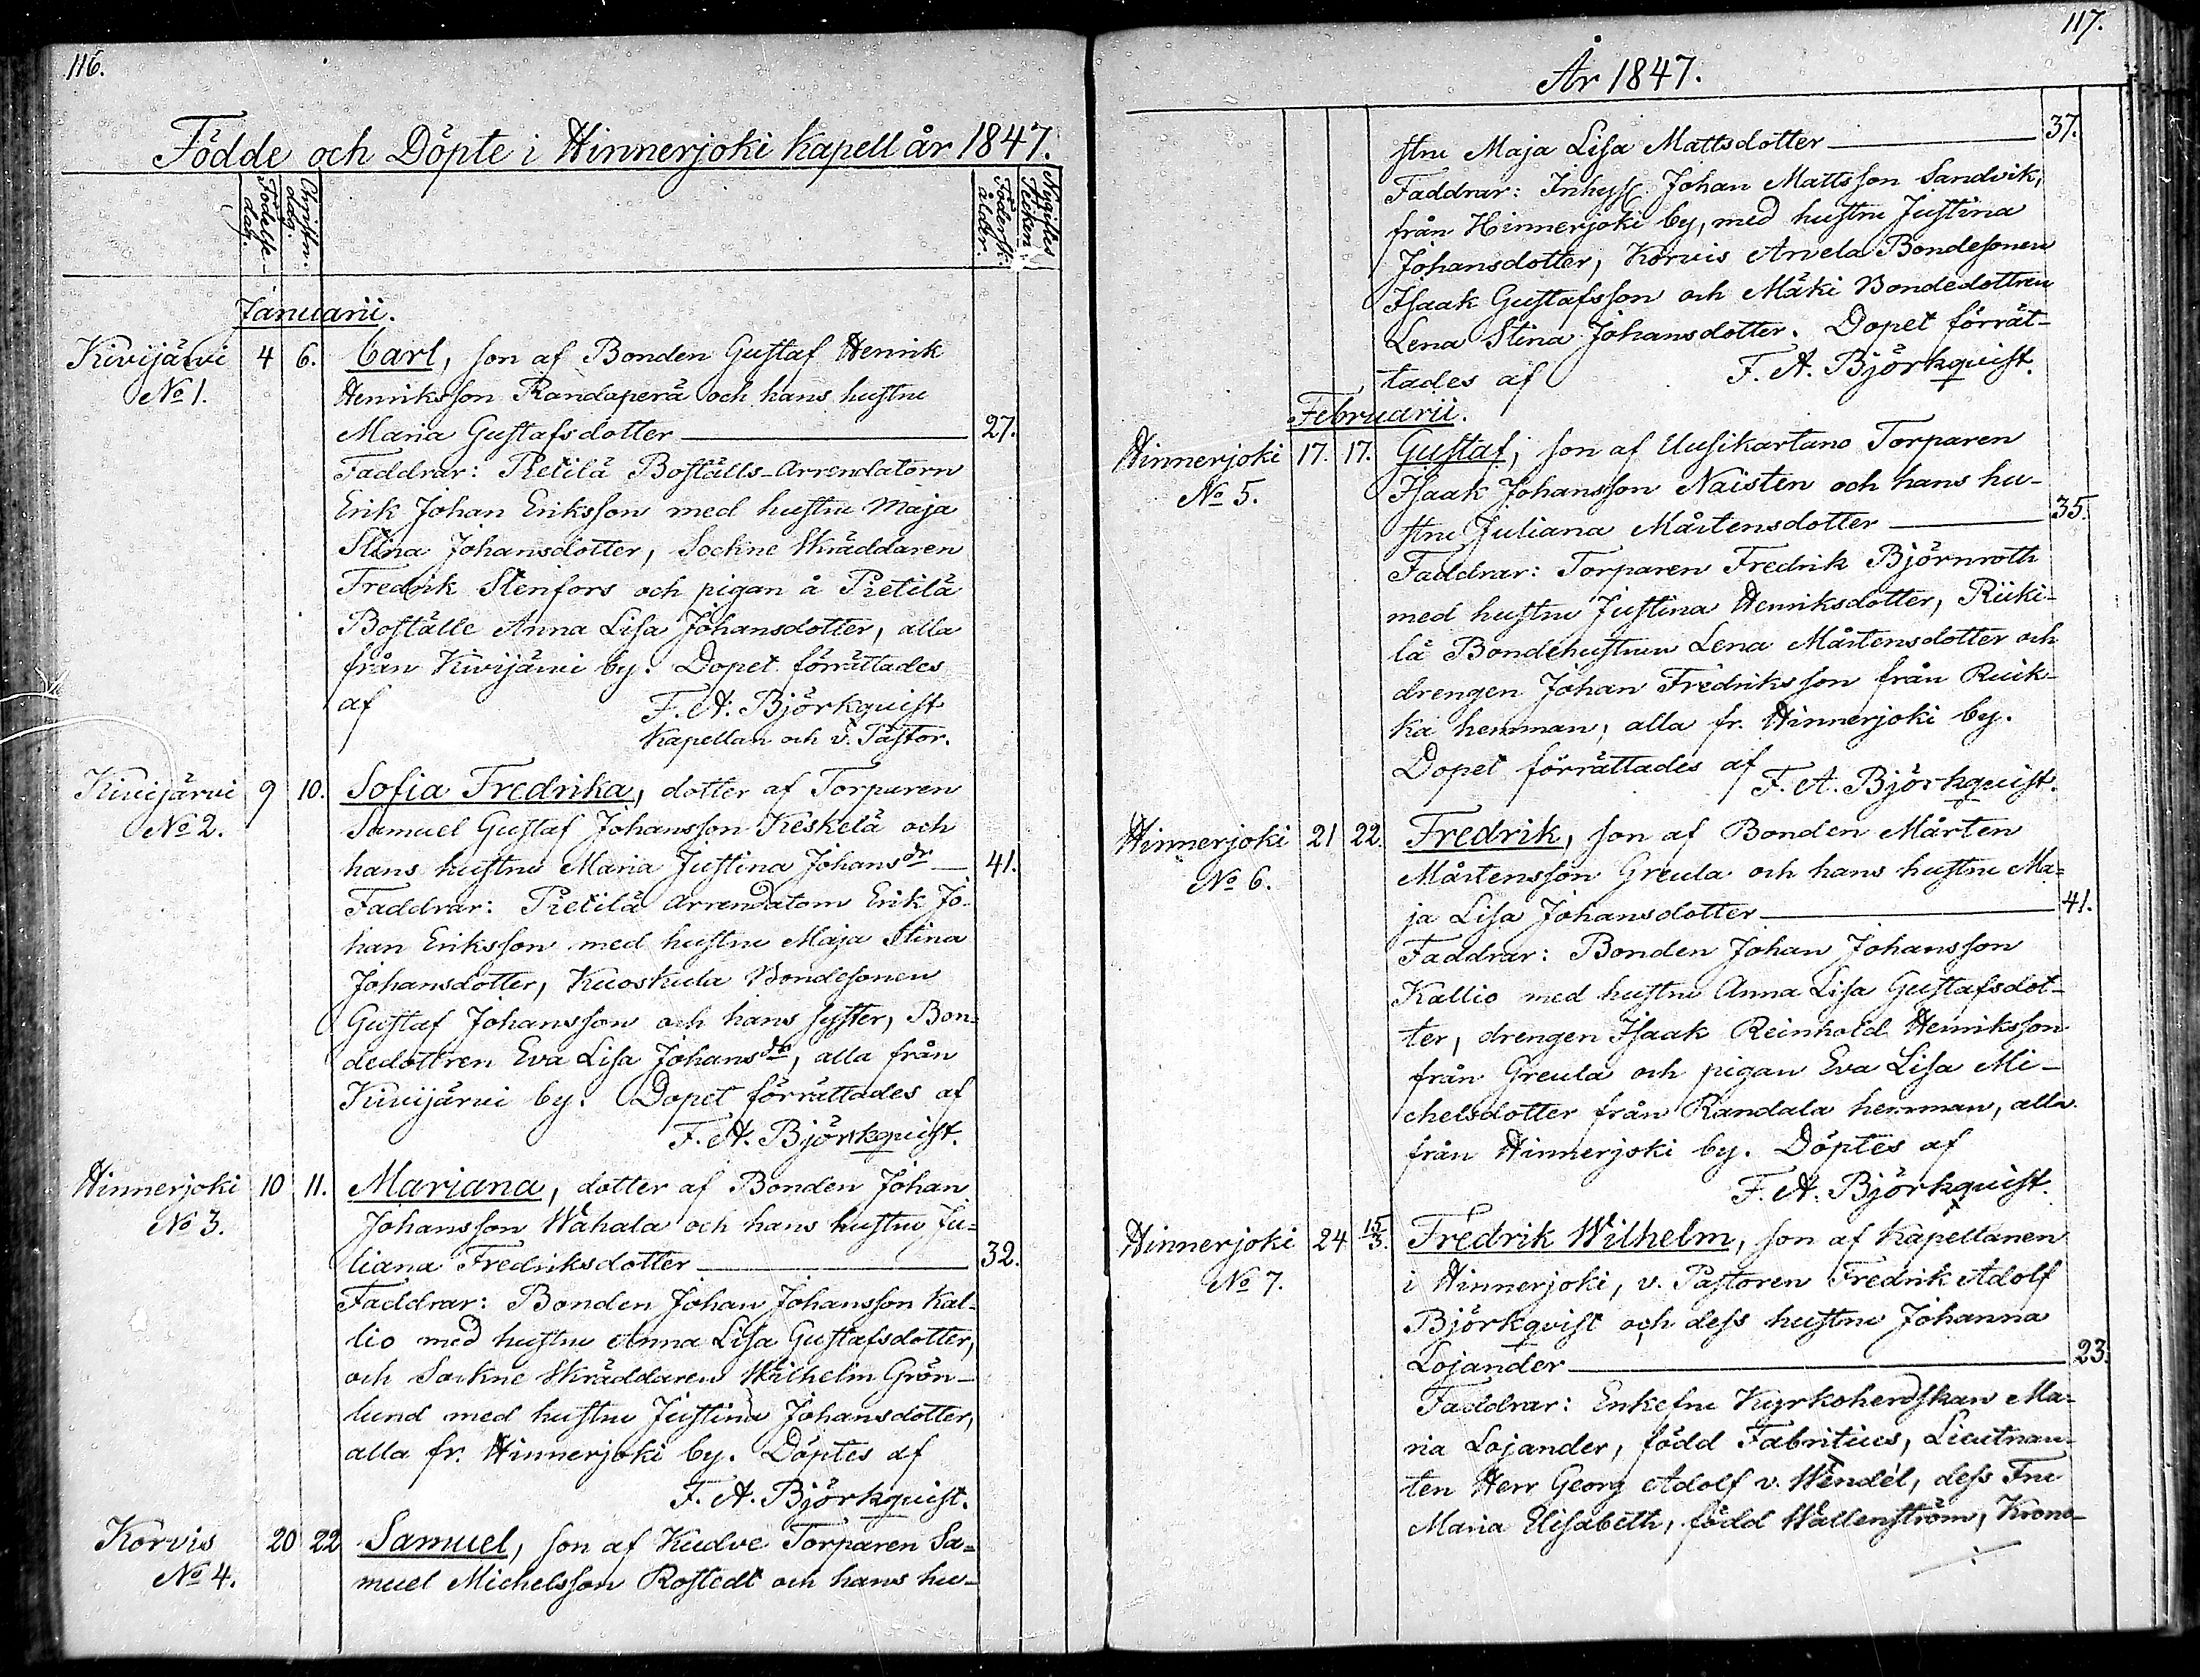 116.
Födde och Döpte i Hinnerjoki Kapell år 1847.
Födelse-dag.
Christn: dag.
Födersk: ålder.
Januarii.
Kivijärvi 4 6. Carl, son af Bonden Gustaf Henrik
No 1. Henriksson Randaperä och hans hustru
Maria Gustafsdotter 27.
Faddrar: Pietilä Boställs-Arrendatorn
Erik Johan Eriksson med hustru Maja
Stina Johansdotter, Sockne Skräddaren
Fredrik Stenfors och pigan å Pietilä
Boställe Anna Lisa Johansdotter, alla
från Kivijärvi by. Dopet förrättades
af F. A. Björkquist
Kapellan och v. Pastor.
Kivijärvi 9 10. Sofia Fredrika, dotter af Torparen
No 2. Samuel Gustaf Johansson Keskelä och
hans hustru Maria Justina Johansdr 41.
Faddrar: Pietilä Arrendatorn Erik Jo-
han Eriksson med hustru Maja Stina
Johansdotter, Kuoskula Bondesonen
Gustaf Johansson och hans syster, Bon-
dedottren Eva Lisa Johansdr, alla från
Kivijärvi by. Dopet förrättades af
F. A. Björkquist.
Hinnerjoki 10 11. Mariana, dotter af Bonden Johan
No 3. Johansson Wähala och hans hustru Ju-
liana Fredriksdotter 32.
Faddrar: Bonden Johan Johansson Kal-
lio med hustru Anna Lisa Gustafsdotter,
och Sockne Skräddaren Wilhelm Grön-
lund med hustru Justina Johansdotter,
alla fr. Hinnerjoki by. Döptes af
F. A. Björkquist.
Korvis 20 22 Samuel, son af Kudve Torparen Sa-
No 4. muel Michelsson Rostedt och hans hu-
117.
År 1847.
stru Maja Lisa Mattsdotter 37.
Faddrar: Inhyss. Johan Mattsson Sandvik,
från Hinnerjoki by, med hustru Justina
Johansdotter, Korvis Arvela Bondesonen
Isaak Gustafsson och Mäki Bondedottren
Lena Stina Johansdotter. Dopet förrät-
tades af F. A. Björkquist.
Februarii.
Hinnerjoki 17. 17. Gustaf, son af Uusikartano Torparen
No 5. Isaak Johansson Naisten och hans hu-
stru Juliana Mårtensdotter 35.
Faddrar: Torparen Fredrik Björnroth
med hustru Justina Henriksdotter, Riiki-
lä Bondehustrun Lena Mårtensdotter och
drengen Johan Fredriksson från Ruik-
ka hemman, alla fr. Hinnerjoki by.
Dopet förrättades af F. A. Björkquist.
Hinnerjoki 21 22. Fredrik, son af Bonden Mårten
No 6. Mårtensson Greula och hans hustru Ma-
ja Lisa Johansdotter 41.
Faddrar: Bonden Johan Johansson
Kallio med hustru Anna Lisa Gustafsdot-
ter, drengen Isaak Reinhold Henriksson
från Greula och pigan Eva Lisa Mi-
chelsdotter från Randala hemman, alla
från Hinnerjoki by. Döptes af
F. A. Björkquist.
Hinnerjoki 24 15/3. Fredrik Wilhelm, son af Kapellanen
No 7. i Hinnerjoki, v. Pastoren Fredrik Adolf
Björkqvist och dess hustru Johanna
Lojander 23.
Faddrar: Enkefru Kyrkoherdskan Ma-
ria Lojander, född Fabritius, Lieutnan-
ten Herr Georg Adolf v. Wendel, dess Fru
Maria Elisabeth, född Wallenström, Krono-